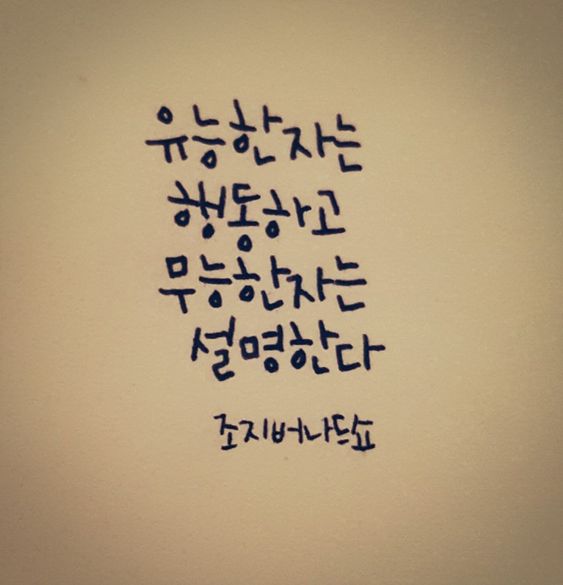 유능한 자는
행동하고
무능한 자는
설명한다
조지버나드쇼